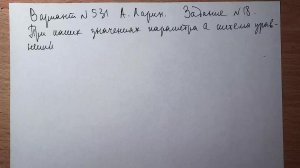 Вариант №531 А. Ларин. Задание №18.
При каких значениях параметра а система урав-
нений